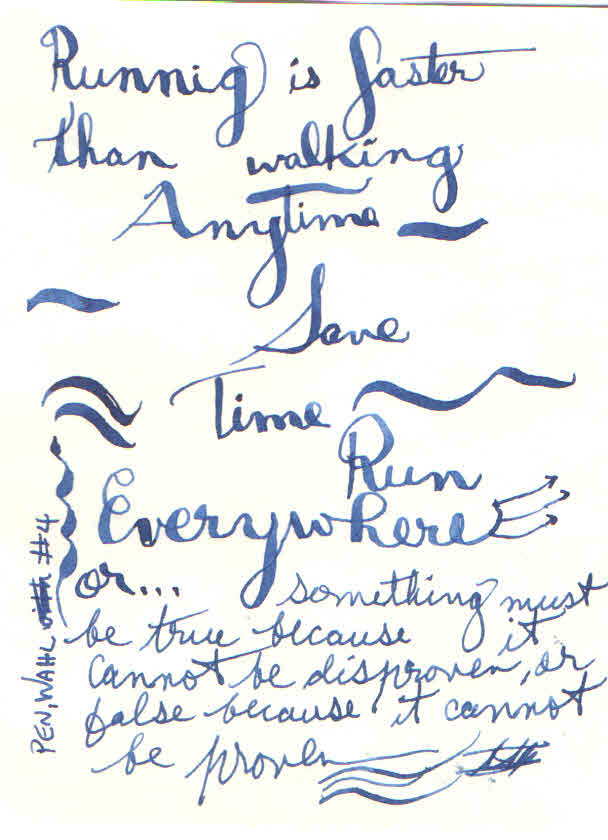 Runnig is faster
than walking
Anytime
Save
Time
Run
Everywhere
or...
something must
be true because it
cannot be disproven, or
false because it cannot
be proven
PEN, WAHL with #4